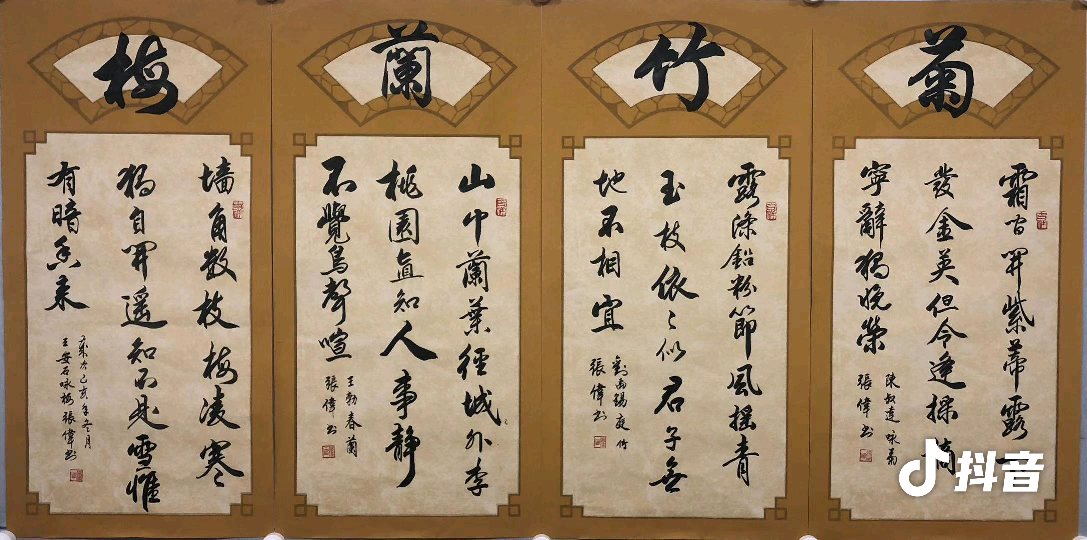 梅
墙角数枝梅凌寒
獨自開遥知不是雪惟
有暗香来
歲次己亥年冬月
王安石咏梅張偉书
蘭
山中蘭葉徑城外李
桃園直知人事静
不覺鳥聲喧
王勃春蘭
張偉书
竹
露滌鉛粉節風摇青
玉枝依〻似君子無
地不相宜
劉禹錫庭竹
張偉书
菊
霜间開紫蒂露
發金英但令逢採摘
寧辭獨晚榮
陳叔達咏菊
張偉书
抖音